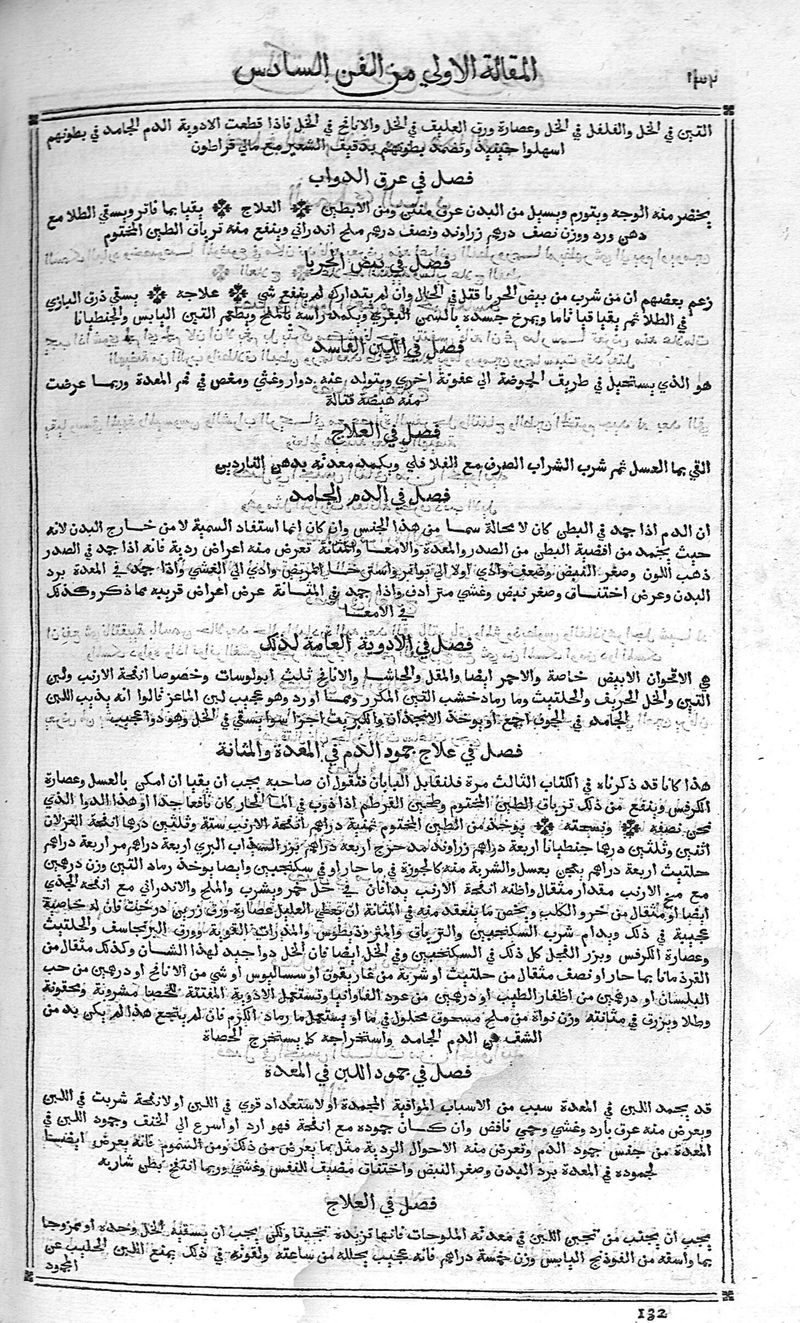 ١٣٢
المقالة الاولي من الفن السادس
التين في الخل والفلفل في الخل وعصارة ورق العليف في الخل والانافح في الخل فاذا قطعت الادوية الدم الجامد في بطونهم
اسهلوا حينيذ وتضمد بطونهم بدقيق الشعير مع مالي قراطون
فصل في عرق الدواب
يخضر منه الوجه ويتورم ويسيل من البدن عرق منتن ومن الابطين العلاج يقيا بما فاتر ويسقي الطلا مع
دهن ورد ووزن نصف درهم زراوند ونصف درهم ملح اندراني وينفع منه ترياق الطين المختوم
فصل في بيض الحربا
زعم بعضهم ان من شرب من بيض الحربا قتل في الحال وان لم يتدارك لم ينفع شي علاجه يسقي ذرق البازي
في الطلا ثم يقيا قيا تاما ويمرخ جسده بالسمن البقري ويكمد راسه بالملح ويطعم التين اليابس والجنطيانا
فصل في اللبن الفاسد
هو الذي يستحيل في طريق الحموضة الي عفونة اخري ويتولد عنه دوار وغشي ومغص في فم المعدة وربما عرضت
منه هيضة قتالة
فصل في العلاج
القي بما العسل ثم شرب الشراب الصرف مع الفلافلي ويكمد معدته بدهن الناردين
فصل في الدم الجامد
ان الدم اذا جمد في البطن كان لا محالة سما من هذا الجنس وان كان انما استفاد السمية لا من خارج البدن لانه
حيث يجمد من افضية البطن من الصدر والمعدة والامعا والمثانة تعرض منه اعراض ردية فانه اذا جمد في الصدر
ذهب اللون وصغر النبض وضعف وادي اولا الي تواتر واسترخا المريض وادي الي الغشي واذا جمد في المعدة برد
البدن وعرض اختناق وصغر نبض وغشي مترادف واذا جمد في المثانة عرض اعراض قريبه مما ذكر وكذلك
في الامعا
فصل في الادوية العامة لذلك
هي الاقحوان الابيض خاصة والاحمر ايضا والمقل والحاشا والانافح ثلث ابولوسات وخصوصا انفحة الارنب ولبن
التين والخل الحريف والحلتيث وما رماد خشب التين المكرر ومما اورد وهو عجيب لبن الماعز قالوا انه يذيب اللبن
الجامد في الجوف اجمع او يوخذ الانجدان والكبريت اجزا سوا يسقي في الخل وهو دوا عجيب
فصل في علاج جمود الدم في المعدة والمثانة
هذا كانا قد ذكرناه في الكتاب الثالث مرة فلنقابل البيان فنقول ان صاحبه يجب ان يقيا ان امكن بالعسل وعصارة
الكرفس وينفع من ذلك ترياق الطين المختوم وطحين القرطم اذا ذوب في الما الحار كان نافعا جدا او هذا الدوا الذي
نحن نصفه ونسخته يوخذ من الطين المختوم ثمنية دراهم انفحة الارنب ستة وثلثين درهما انفحة الغزلان
اثنين وثلثين درهما جنطيانا اربعة دراهم زراوند مدحرج اربعة دراهم بزر السذاب البري اربعة دراهم مر اربعة دراهم
حلتيث اربعة دراهم يعجن بعسل والشربة منه كالجوزة في ما حار او في سكنجبين وايضا يوخذ رماد التين وزن درهمين
مع مخ الارنب مقدار مثقال واظنه انفحة الارنب يدافان في خل خمر ويشرب والملح والاندراني مع انفحة الجدي
ايضا او مثقال من خرو الكلب ويخص ما ينعقد منه في المثانة ان يعطي العليل عصارة ورق زرين درخت فان له خاصية
عجيبة في ذلك ويدام شرب السكنجبين والترياق والمثروذيطوس والمدرات القوية وورق البرنجاسف والحلتيث
وعصارة الكرفس وبزر الفجل كل ذلك في السكنجبين وفي الخل ايضا فان الخل دوا جيد لهذا الشان وكذلك مثقال من
القردمانا بما حار او نصف مثقال من حلتيث او شربة من غاريقون او سساليوس او شي من الانافح او درهمين من حب
البلسان او درهمين من اظفار الطيب او درهمين من عود الفاوانيا وتستعمل الادوية المفتتة للحصا مشروبة ومحقونة
وطلا ويزرق في مثانته وزن نواة من ملح مسحوق محلول في ما او يستعمل ما رماد الكرم فان لم ينجع هذا لم يكن بد من
الشق عن الدم الجامد واستخراجه كما يستخرج الحصاة
فصل في جمود اللبن في المعدة
قد يجمد اللبن في المعدة سبب من الاسباب الموافية المجمدة او لاستعداد قوي في اللبن او لانفحة شربت في اللبن
ويعرض منه عرق بارد وغشي وحمي نافض وان كان جموده مع انفحة فهو ارد او اسرع الي الخنق وجمود اللبن في
المعدة من جنس جمود الدم وتعرض منه الاحوال الردية مثل ما يعرض من ذلك ومن السموم فانه يعرض ايضا
لجموده في المعدة برد البدن وصغر النبض واختناق مضيق للنفس وغشي وربما انتفخ بطن شاربه
فصل في العلاج
يجب ان يجتنب من تجبن اللبن في معدته الملوحات فانها تزيده تجبنا ولكن يجب ان يسقيه الخل وحده او ممزوجا
بما واسقه من الفوذنج اليابس وزن خمسة دراهم فانه عجيب يحلله من ساعته ولقوته في ذلك يمنع اللبن الحليب عن
الجمود
132